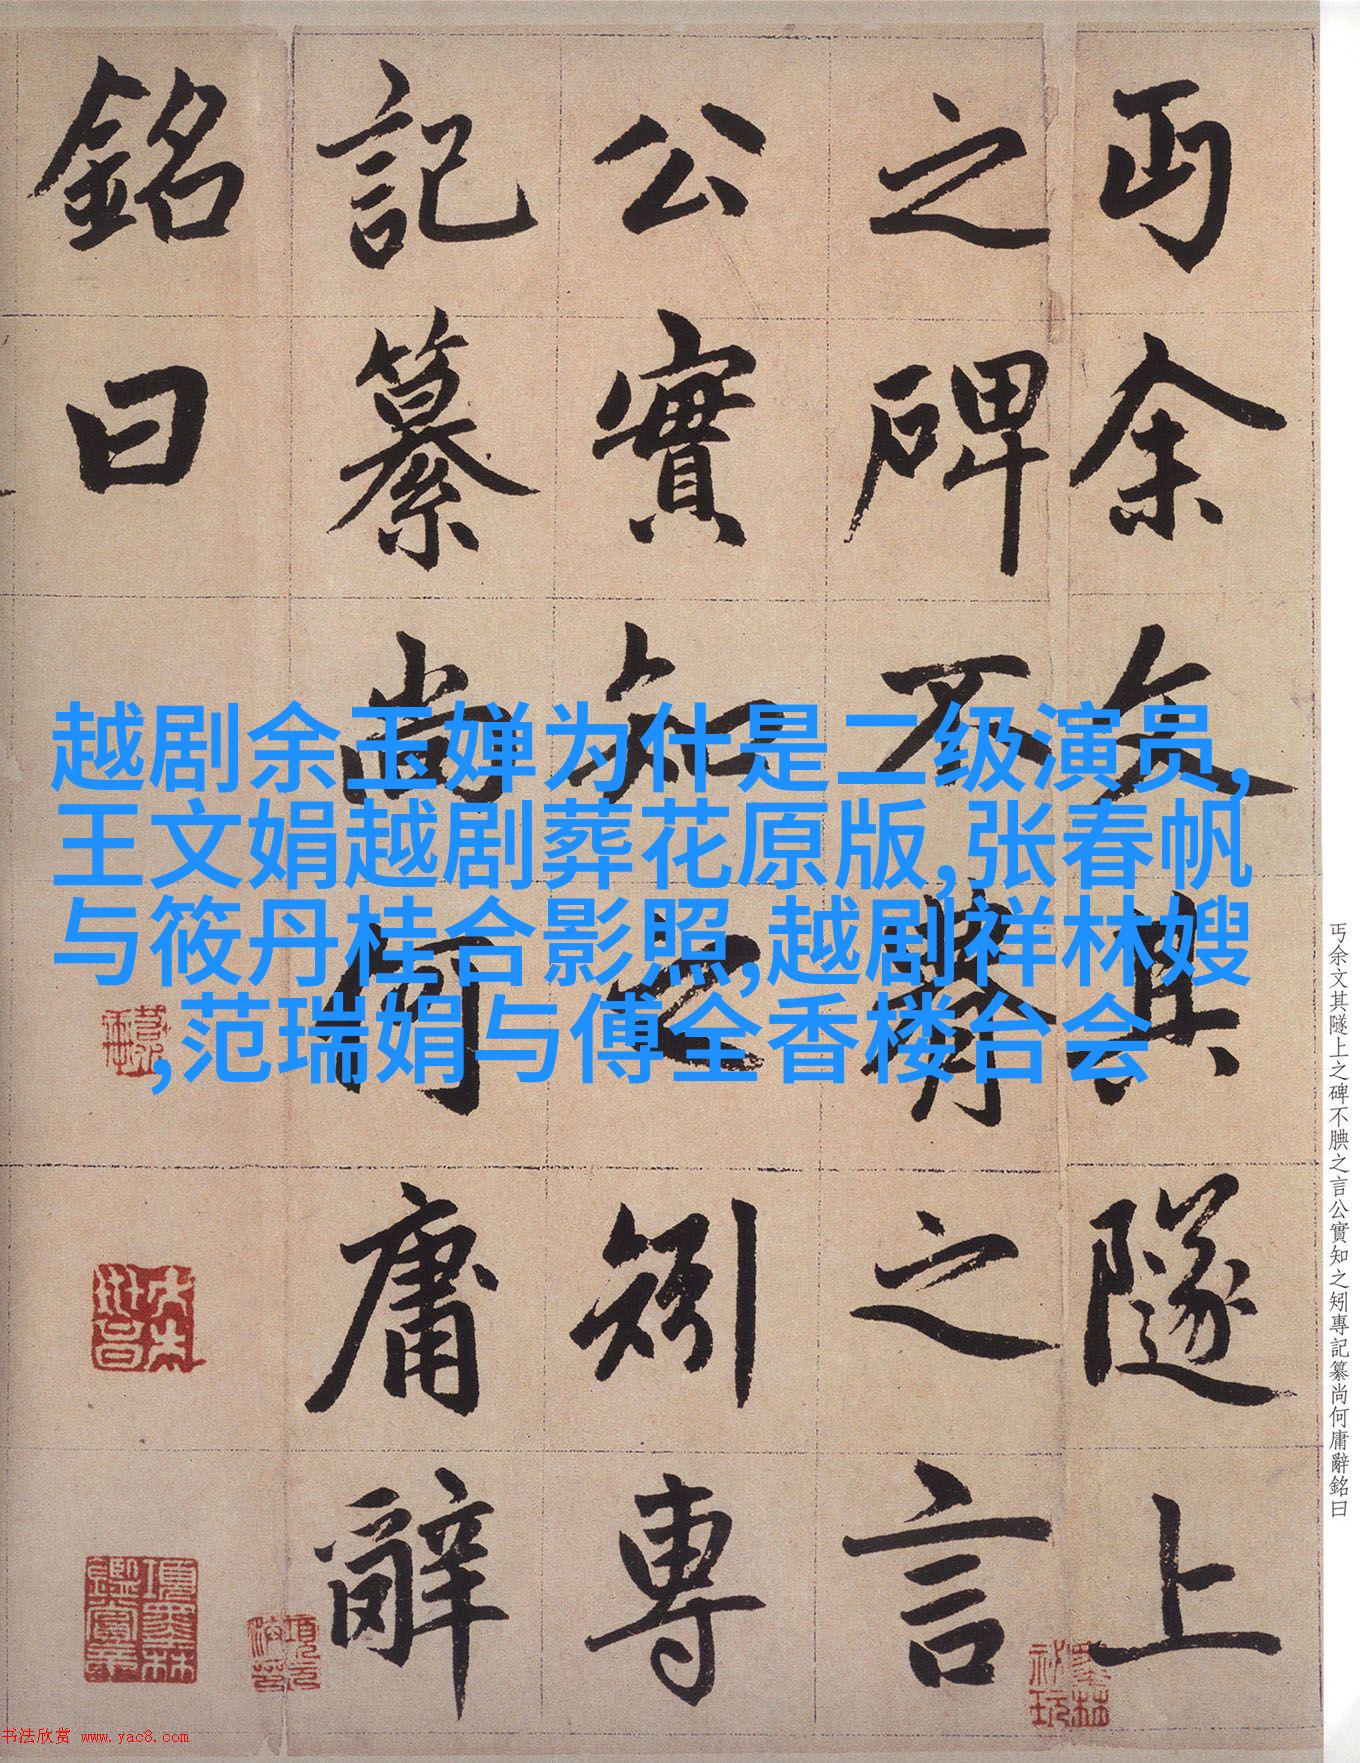 越剧余玉婵为什是二级演员,
王文娟越剧葬花原版,张春帆
与筱丹桂合影照,越剧祥林嫂
,范瑞娟与傅全香楼台会
丐余文其隧上
之碑不腆之言
公實知之矧專
記纂尚何庸辭
銘曰
丐余文其隧上之碑不腆之言公實知之矧專記纂尚何庸辭銘曰
項墨林鑑賞章
墨林祕玩
书法欣赏 www.yac8.com